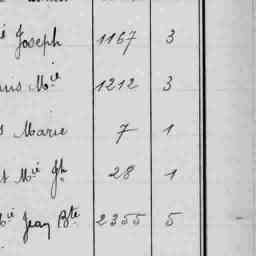 é Joseph 1167 3
ans Mie 1212 3
s Marie 7 1
t Mie Jh 28 1
Mie Jean Bte 2355 5